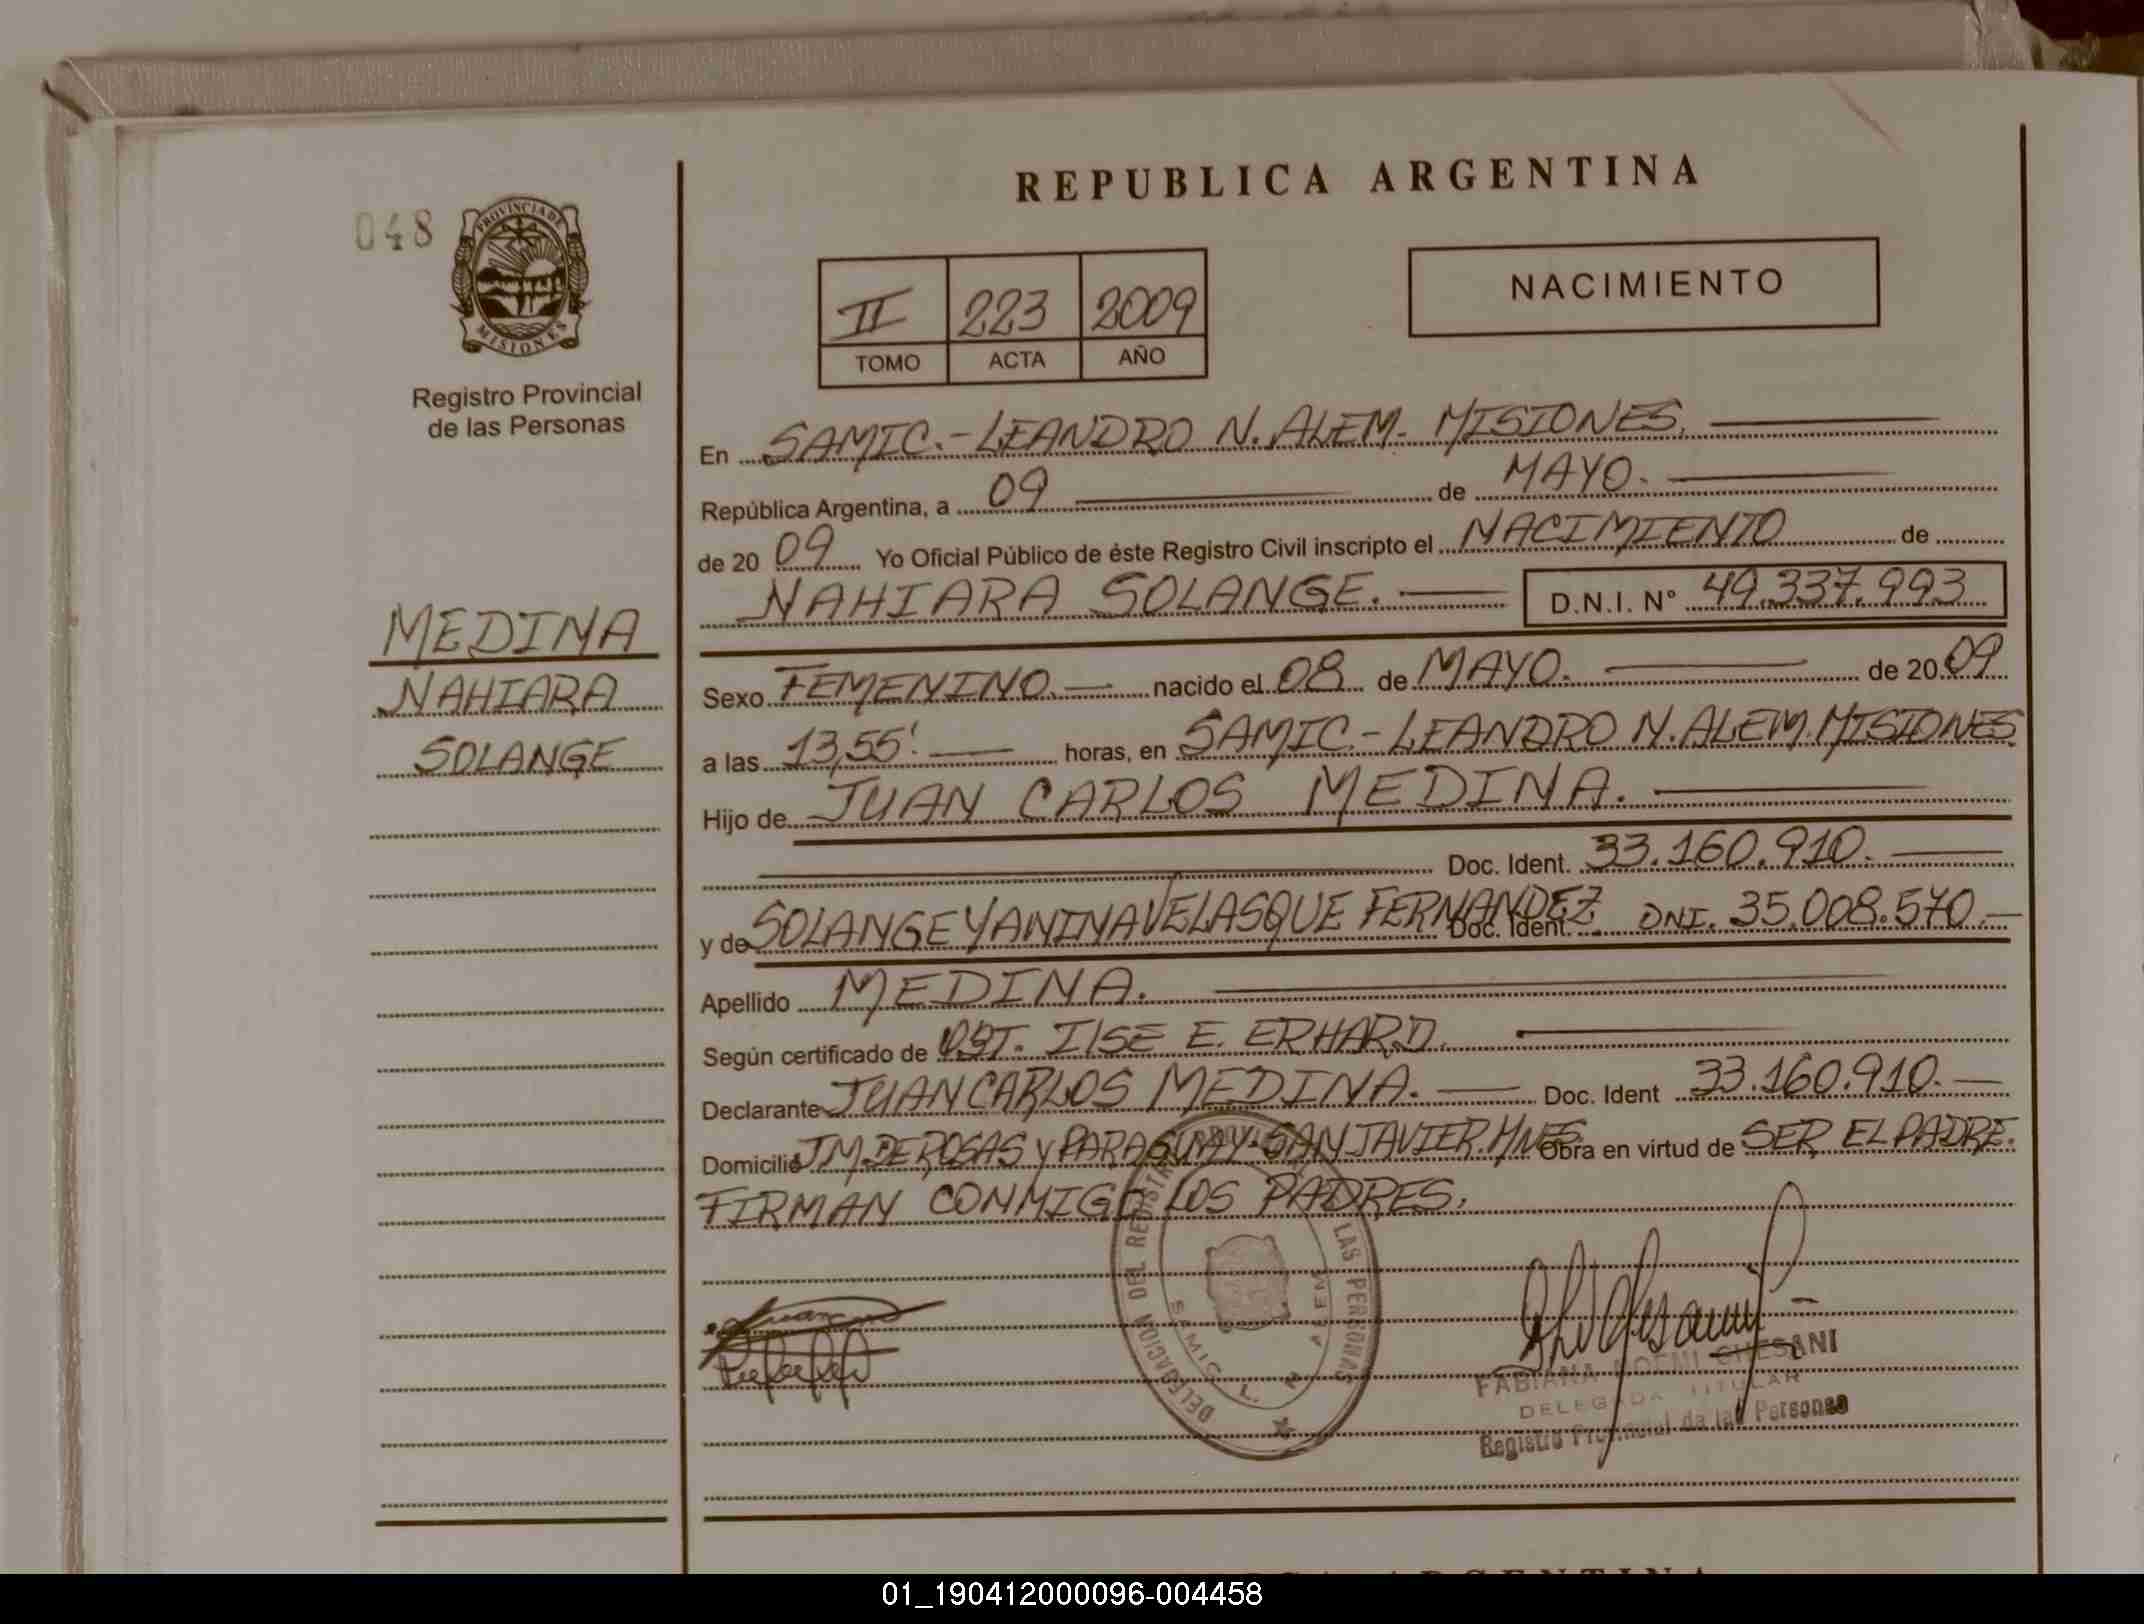 REPUBLICA ARGENTINA
048
PROVINCIA DE
MISIONES
Registro Provincial
de las Personas
II 223 2009
TOMO ACTA AÑO
NACIMIENTO
En SAMIC.-LEANDRO N. ALEM- MISIONES.
República Argentina, a 09 de MAYO.
de 20 09 Yo Oficial Público de éste Registro Civil inscripto el NACIMIENTO de
NAHIARA SOLANGE. D.N.I. N° 49.337.993
MEDINA
NAHIARA
SOLANGE
Sexo FEMENINO. nacido el 08 de MAYO. de 20 09
a las 13,55'. horas, en SAMIC.-LEANDRO N. ALEM. MISIONES.
Hijo de JUAN CARLOS MEDINA.
Doc. Ident. 33.160.910.
y de SOLANGE YANINA VELASQUE FERNANDEZ Doc. Ident. DNI. 35.008.570.
Apellido MEDINA.
Según certificado de OBT. ILSE E. ERHARD.
Declarante JUAN CARLOS MEDINA. Doc. Ident 33.160.910.
Domicilio J.M. DE ROSAS Y PARAGUAY-SAN JAVIER.MNES. Obra en virtud de SER EL PADRE.
FIRMAN CONMIGO LOS PADRES.
DELEGACION DEL REGISTRO LAS PERSONAS
SAMIC L. N. ALEM
FABIANA NOEMI GHESANI
DELEGADA TITULAR
Registro Provincial de las Personas
01_190412000096-004458